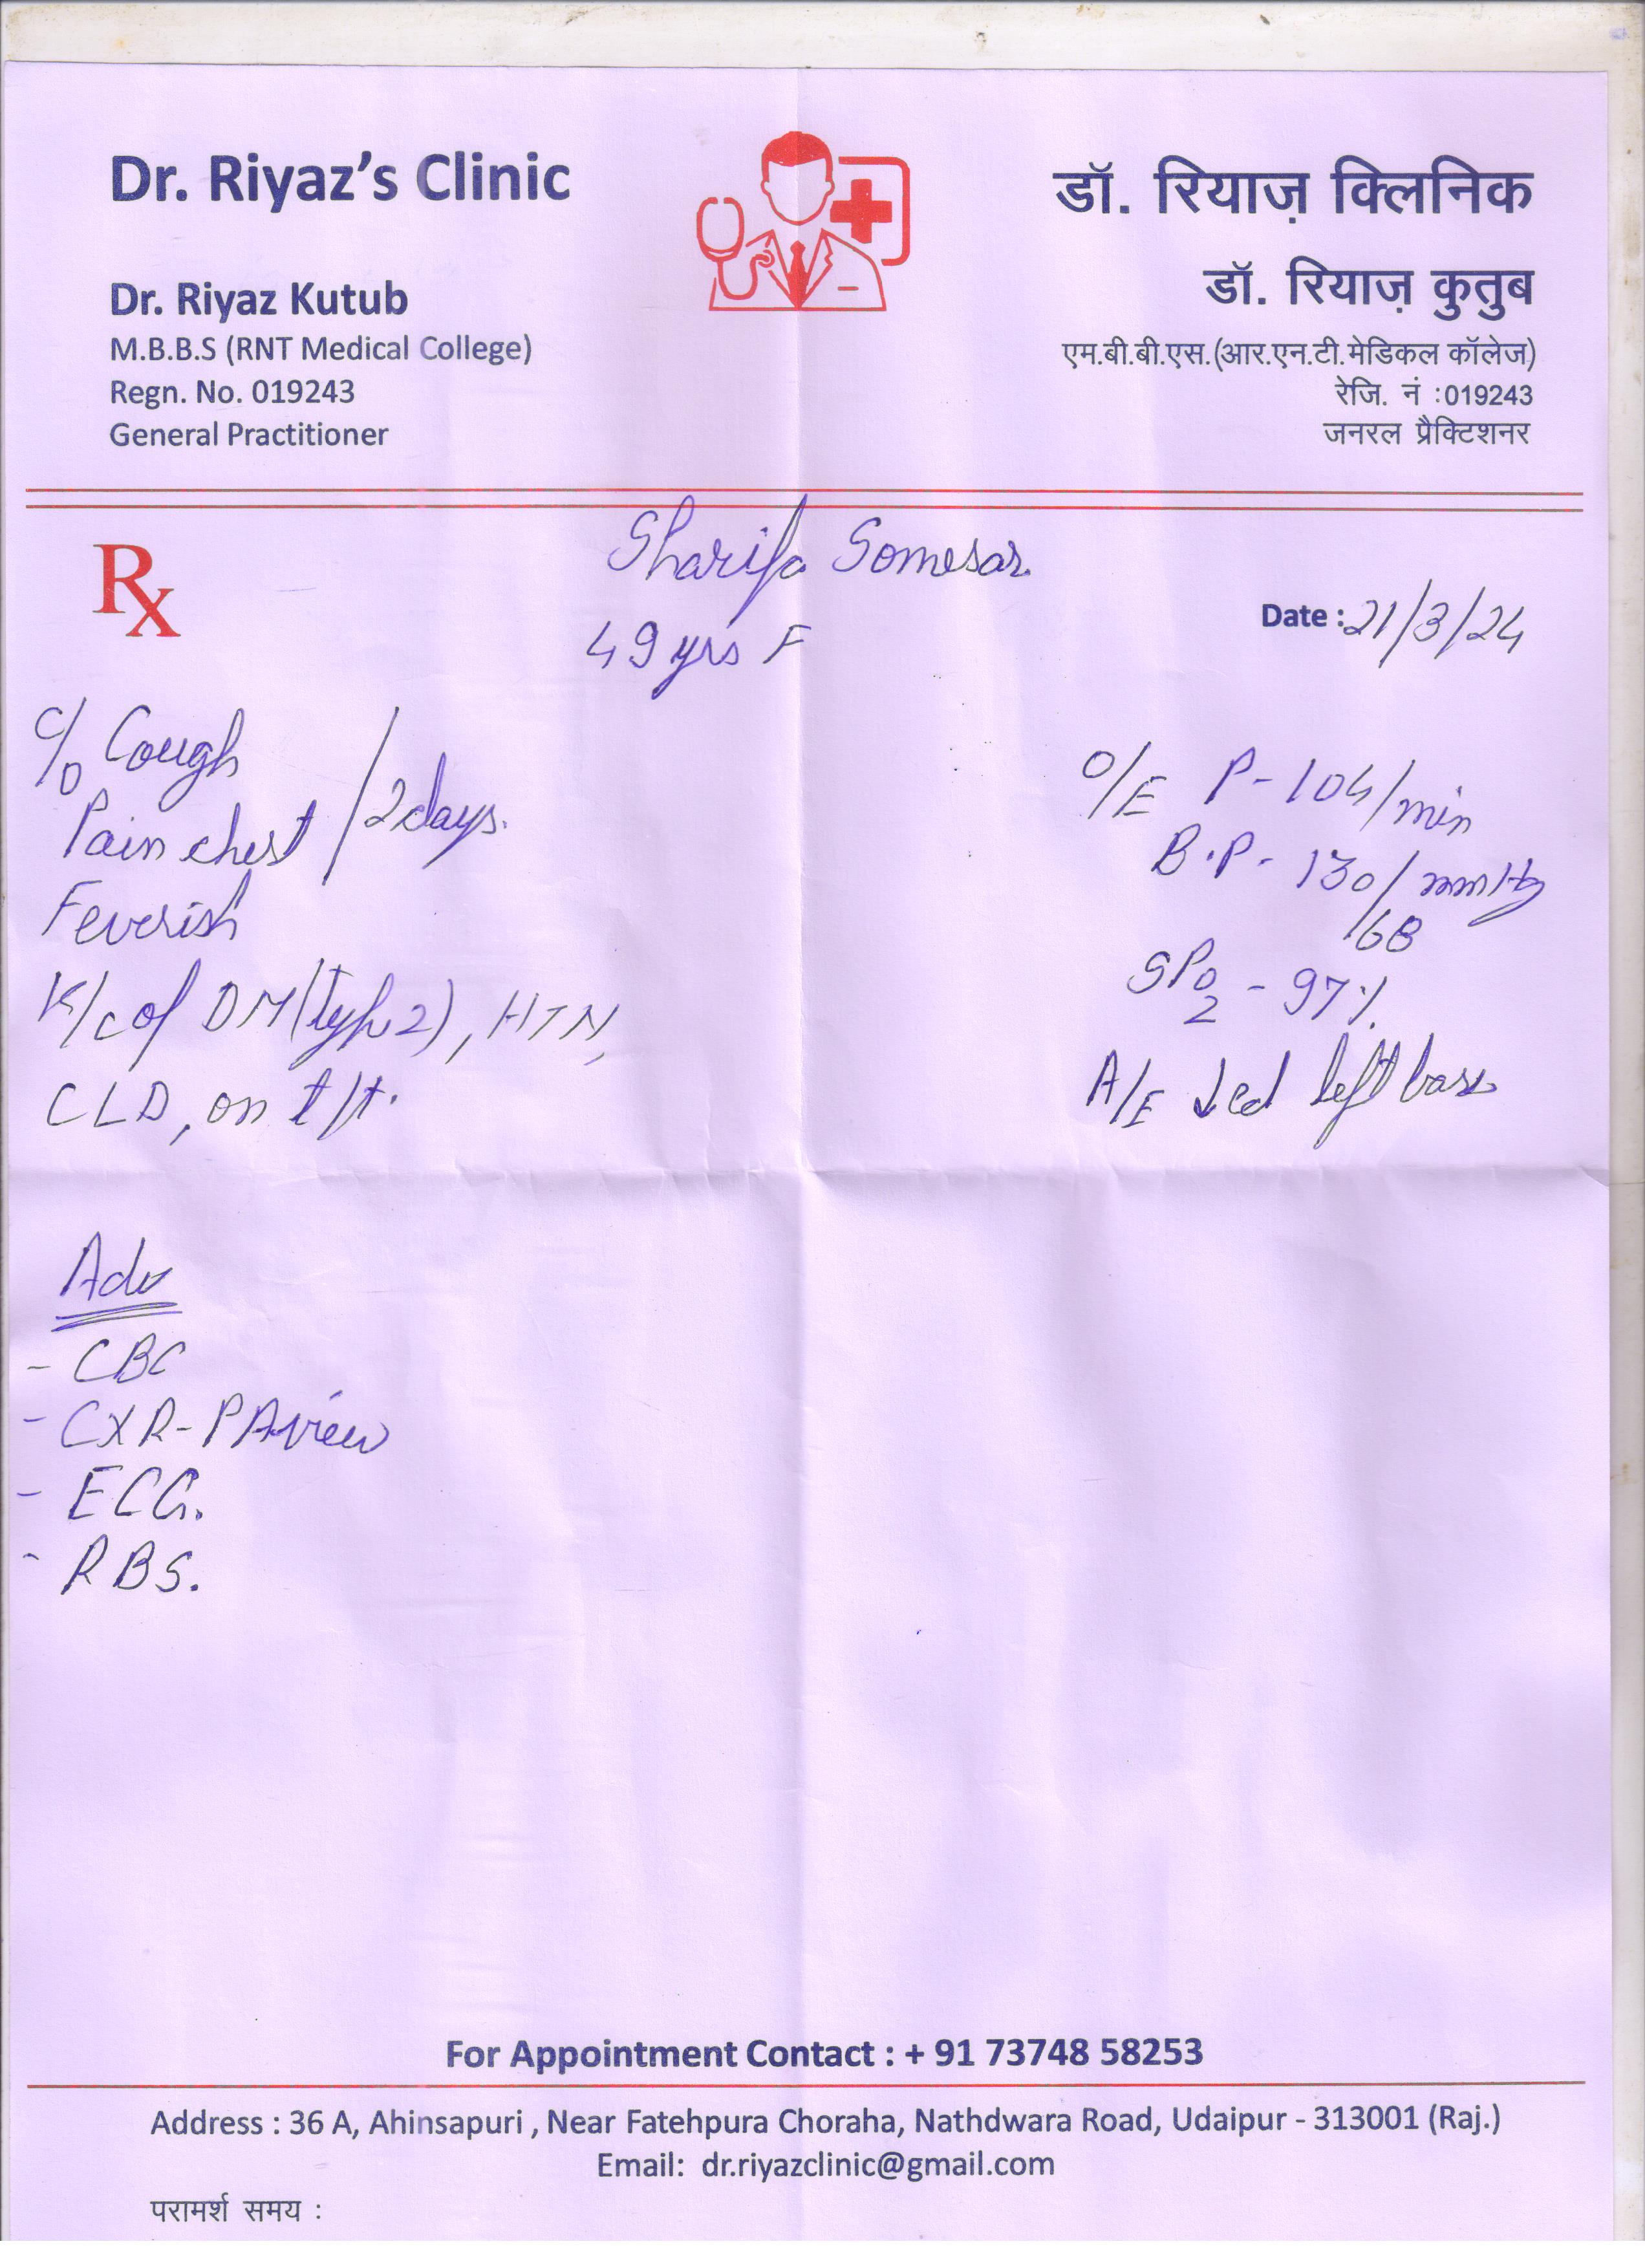 Dr. Riyaz's Clinic
Dr. Riyaz Kutub
M.B.B.S (RNT Medical College)
Regn. No. 019243
General Practitioner
डॉ. रियाज़ क्लिनिक
डॉ. रियाज़ कुतुब
एम.बी.बी.एस.(आर.एन.टी.मेडिकल कॉलेज)
रेजि. नं :019243
जनरल प्रैक्टिशनर
Rx
Sharifa Somesar
49 yrs F
Date : 21/3/24
C/O Cough
Pain chest / 2 days.
Feverish
K/c of DM (type 2), HTN,
CLD, on t/t.
O/E P - 104/min
B.P. - 130/68 mmHg
SPO2 - 97%
A/E ↓ed left base
Adv
- CBC
- CXR - PA view
- ECG.
- RBS.
For Appointment Contact : + 91 73748 58253
Address : 36 A, Ahinsapuri , Near Fatehpura Choraha, Nathdwara Road, Udaipur - 313001 (Raj.)
Email: dr.riyazclinic@gmail.com
परामर्श समय :